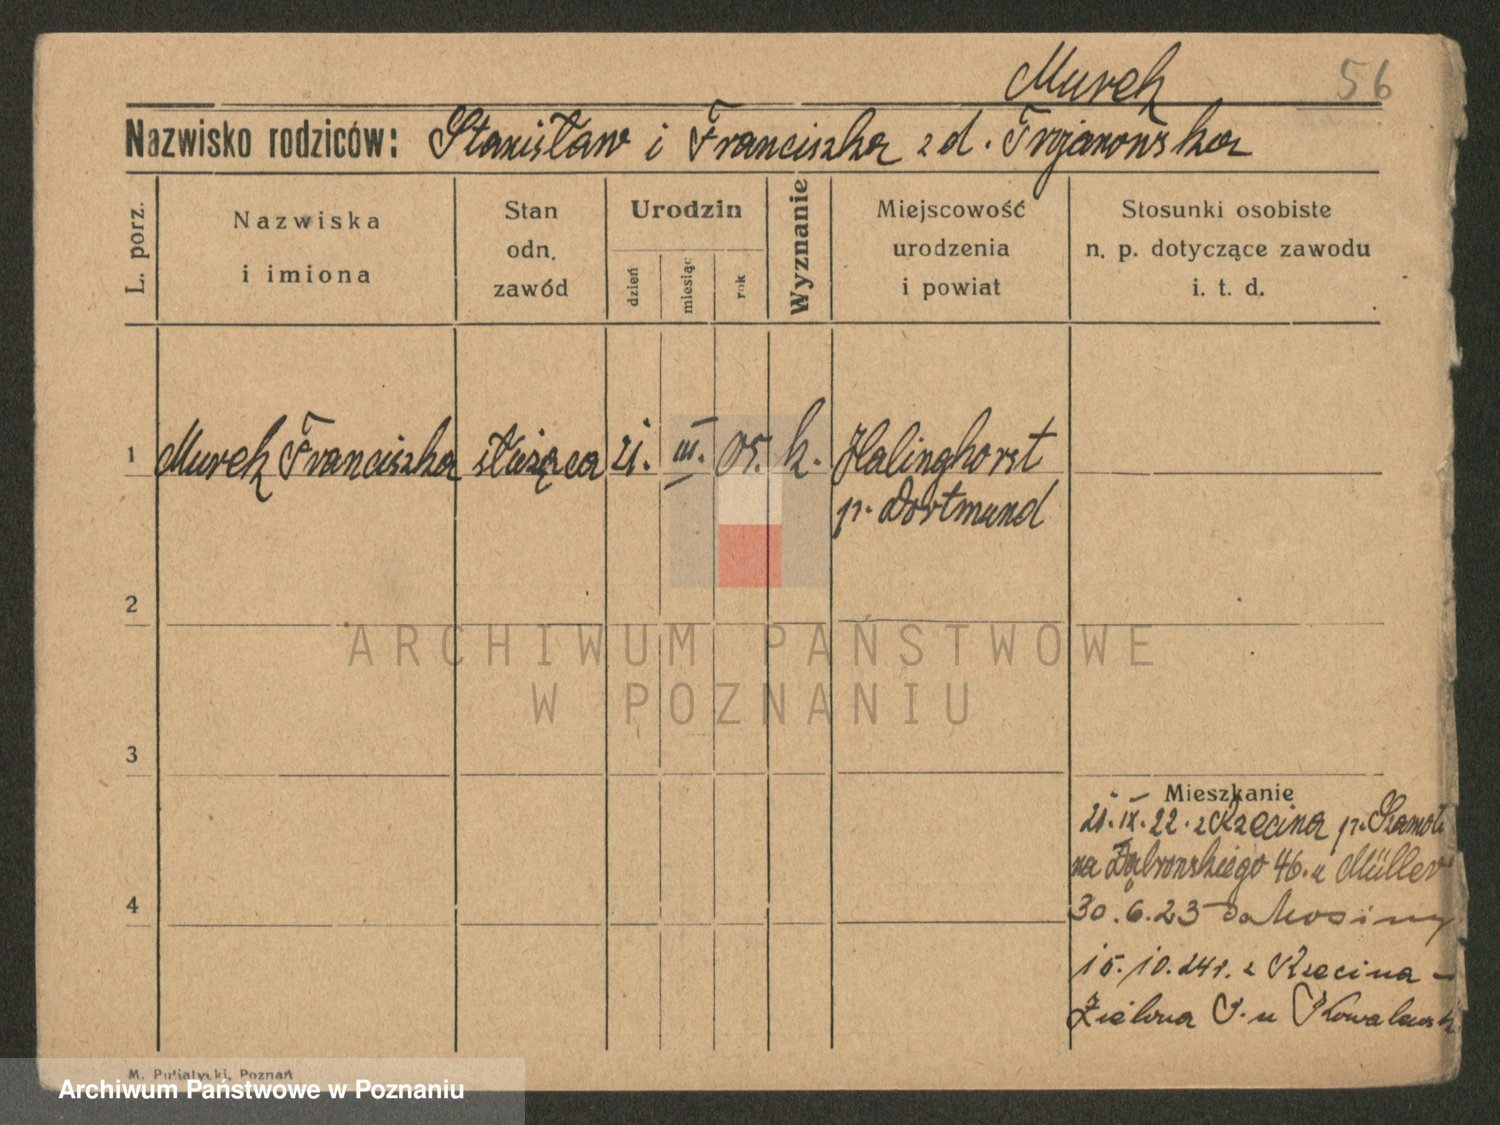 Murek 56
Nazwisko rodziców: Stanisław i Franciszka z d. Trojanowska
L. porz.
Nazwiska
i imiona
Stan
odn.
zawód
Urodzin
dzień
miesiąc
rok
Wyznanie
Miejscowość
urodzenia
i powiat
Stosunki osobiste
n. p. dotyczące zawodu
i. t. d.
1 Murek Franciszka służąca 21. III. 05. k. Halinghorst
p. Dortmund
2
ARCHIWUM PAŃSTWOWE
W POZNANIU
3
Mieszkanie
21. IX. 22. z Rzecina p. Szamot
na Dąbrowskiego 46. u Müller
4
30. 6. 23 do Mosiny
15. 10. 24 r. z Rzecina –
Zielona u Kowalewsk
M. Putiatycki, Poznań
Archiwum Państwowe w Poznaniu